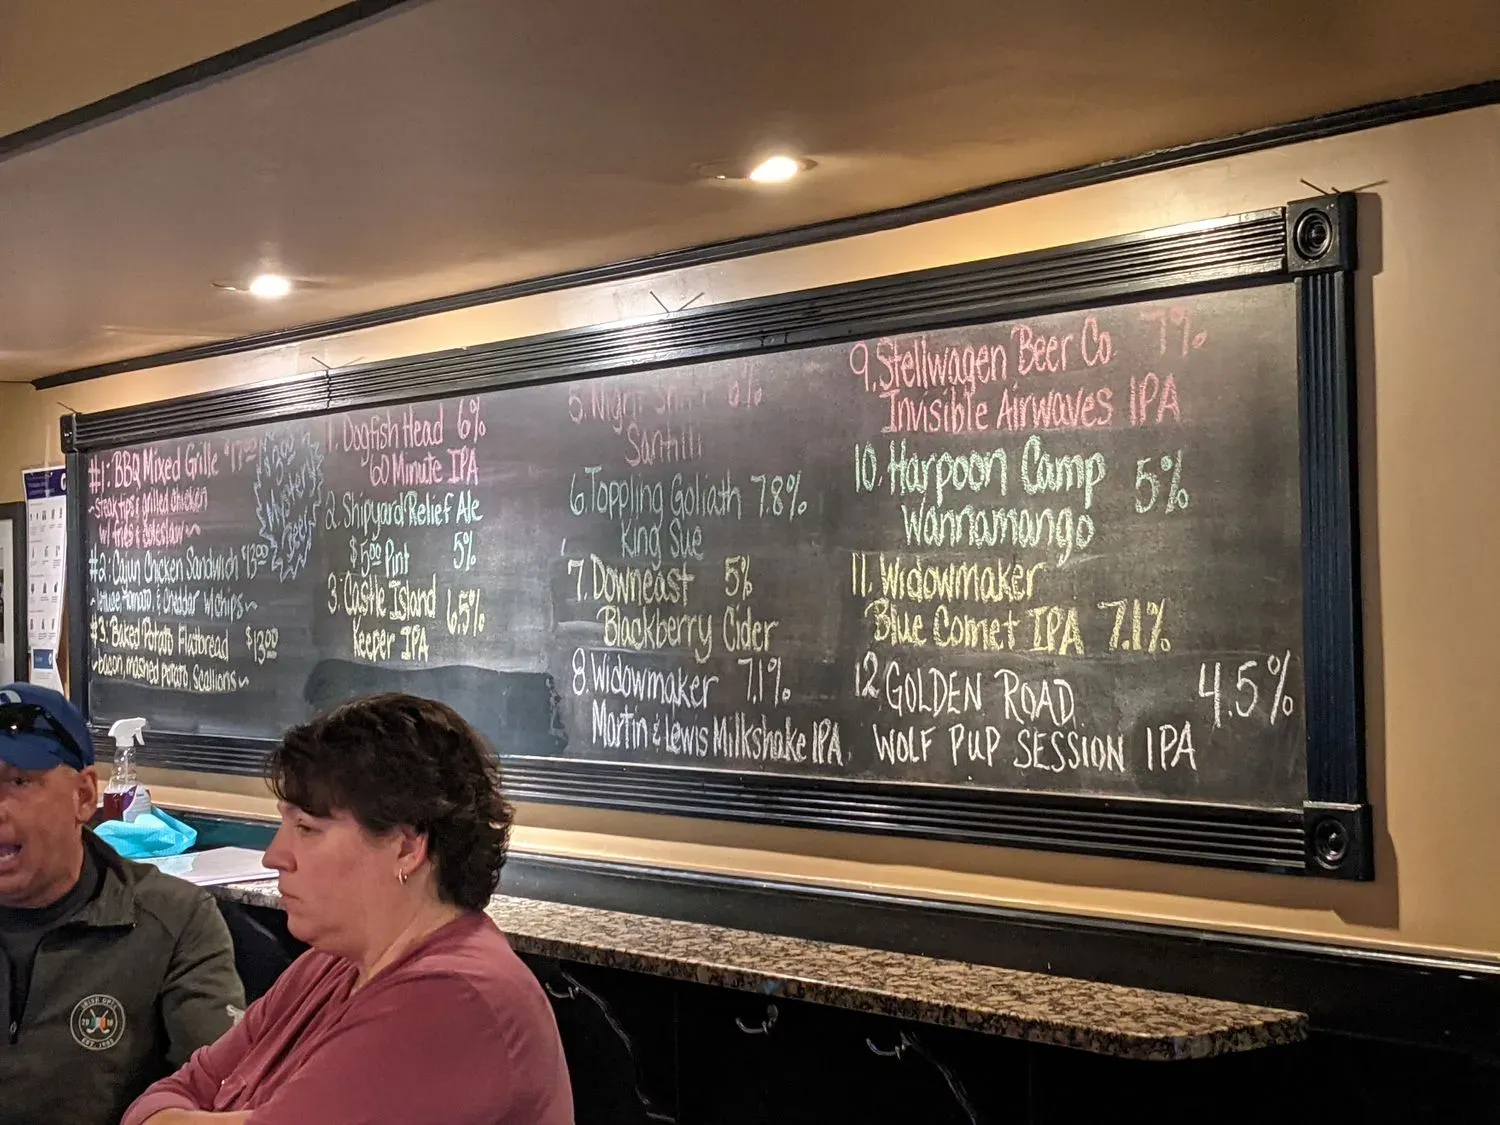 #1: BBQ Mixed Grille $17.00
~steak tips & grilled chicken
w/ fries & coleslaw~
#2: Cajun Chicken Sandwich $13.00
~lettuce, tomato, & cheddar w/chips~
#3: Baked Potato Flatbread $13.00
~bacon, mashed potato, scallions~
Mystery
Beer
1. Dogfish Head 6%
60 Minute IPA
2. Shipyard Relief Ale
$5.00 Pint 5%
3. Castle Island 6.5%
Keeper IPA
5. Night Shift 6%
Santilli
6 Toppling Goliath 7.8%
King Sue
7. Downeast 5%
Blackberry Cider
8. Widowmaker 7.1%
Martin & Lewis Milkshake IPA
9. Stellwagen Beer Co 7%
Invisible Airwaves IPA
10. Harpoon Camp 5%
Wannamango
11. Widowmaker
Blue Comet IPA 7.1%
12 GOLDEN ROAD 4.5%
WOLF PUP SESSION IPA